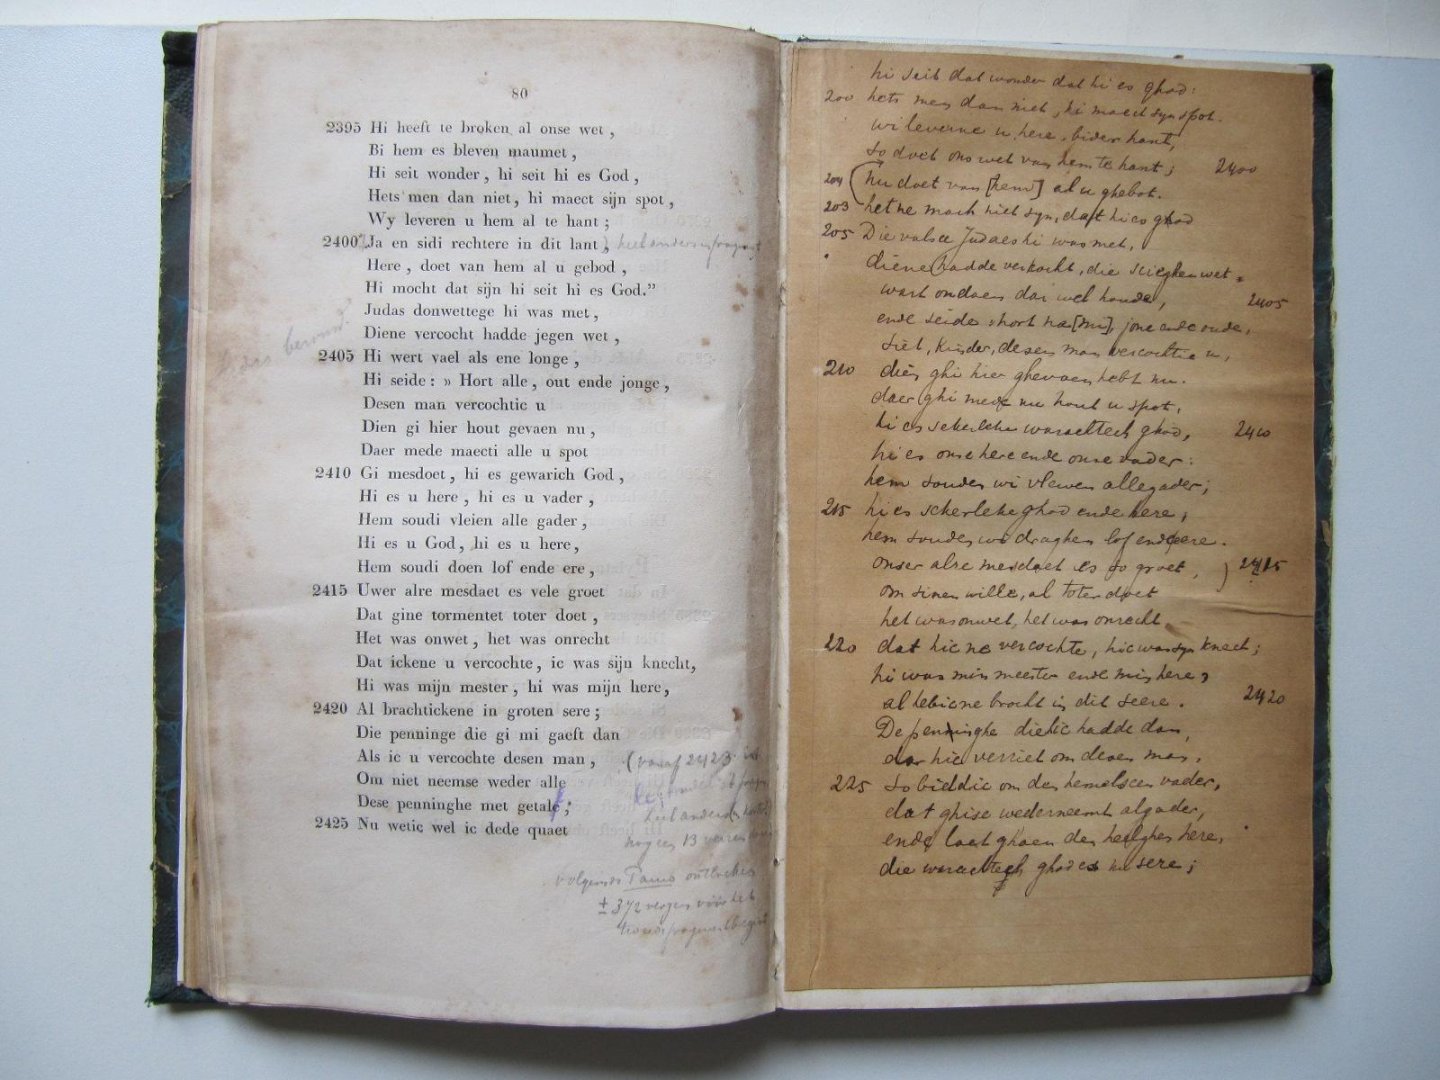 80
2395 Hi heeft te broken al onse wet ,
Bi hem es bleven maumet ,
Hi seit wonder , hi seit hi es God ,
Hets men dan niet , hi maect sijn spot ,
Wy leveren u hem al te hant ;
2400 Ja en sidi rechtere in dit lant ,
Here , doet van hem al u gebod ,
Hi mocht dat sijn hi seit hi es God.”
Judas donwettege hi was met ,
Diene vercocht hadde jegen wet ,
2405 Hi wert vael als ene longe ,
Hi seide : » Hort alle , out ende jonge ,
Desen man vercochtic u
Dien gi hier hout gevaen nu ,
Daer mede maecti alle u spot
2410 Gi mesdoet , hi es gewarich God ,
Hi es u here , hi es u vader ,
Hem soudi vleien alle gader ,
Hi es u God , hi es u here ,
Hem soudi doen lof ende ere ,
2415 Uwer alre mesdaet es vele groet
Dat gine tormentet toter doet ,
Het was onwet , het was onrecht
Dat ickene u vercochte , ic was sijn knecht,
Hi was mijn mester , hi was mijn here ,
2420 Al brachtickene in groten sere ;
Die penninge die gi mi gaeft dan
Als ic u vercochte desen man ,
Om niet neemse weder alle
Dese penninghe met getale ;
2425 Nu wetic wel ic dede quaet
(vanaf 2423
heel anders
nog een 13
volgends
± 372 verzen vóór het
hi seit dat wonder dat hi es ghod :
200 hets men dan niet, hi maect syn spot.
wi leverne u, here, bider hant,
so doet ons wet van hem te hant ; 2400
204 Nu doet van [hem] al u ghebot.
203 het ne mach niet syn, dat hi es ghod
205 Die valsce Judaes hi was met,
diene hadde verkocht, die
wart ondaen dar wel houde, 2405
ende seide : hort na [mi], jone ende oude,
siet, kinder, desen man vercochtic u,
210 dien ghi hier ghevaen hebt nu.
daer ghi mede nu hout u spot,
hi es sekerleke warachtech ghod, 2410
hi es onse here ende onse vader :
hem souden wi vlewen allegader ;
215 hi es sekerleke ghod ende here ,
hem souden wi draghen lof ende ere .
onser alre mesdaet es so groet , ) 2415
om sinen wille, al toter doet
het was onwet, het was onrecht
220 dat hic ne vercochte, hic was syn knech ;
hi was min meester ende min here ,
al hebicne brocht in dit seere . 2420
De penninghe die hic hadde dan,
dar hic verriet om desen man,
225 So biddic om den hemelscen vader,
dat ghise wederneemt algader,
ende laet ghaen den heileghen here,
die warachtech ghod es nu sere ;